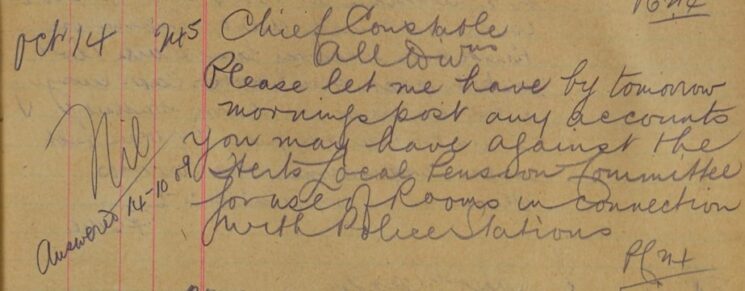 Oct 14 245 Chief Constable
All Divns
Please let me have by tomorrow
mornings post any accounts
you may have against the
Herts Local Pension Committee
for use of Rooms in connection
with Police Stations
Nil
Answered 14-10 09